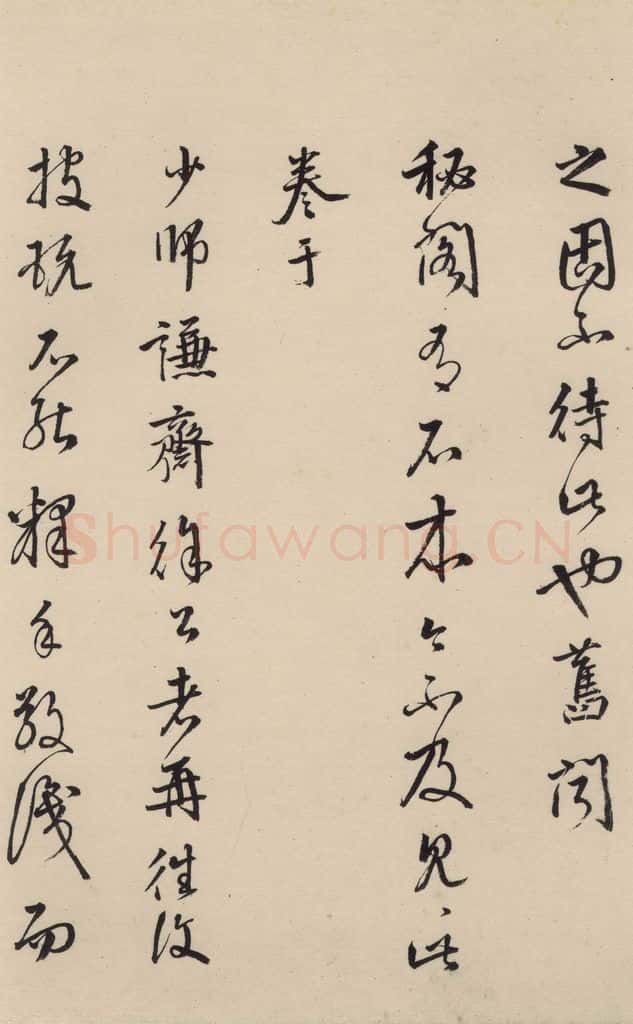 之固不待此也舊聞
秘閣有石本今不及見此
卷于
少師謙齋徐公老再往復
披玩不能釋手敬識而
ShufawangCN